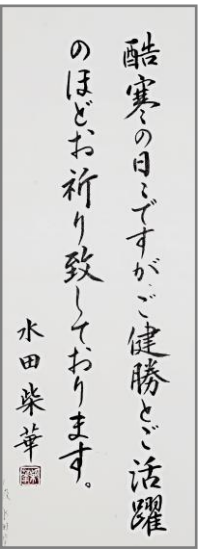 酷寒の日々ですが、ご健勝とご活躍
のほどお祈り致しております。
水田柴華